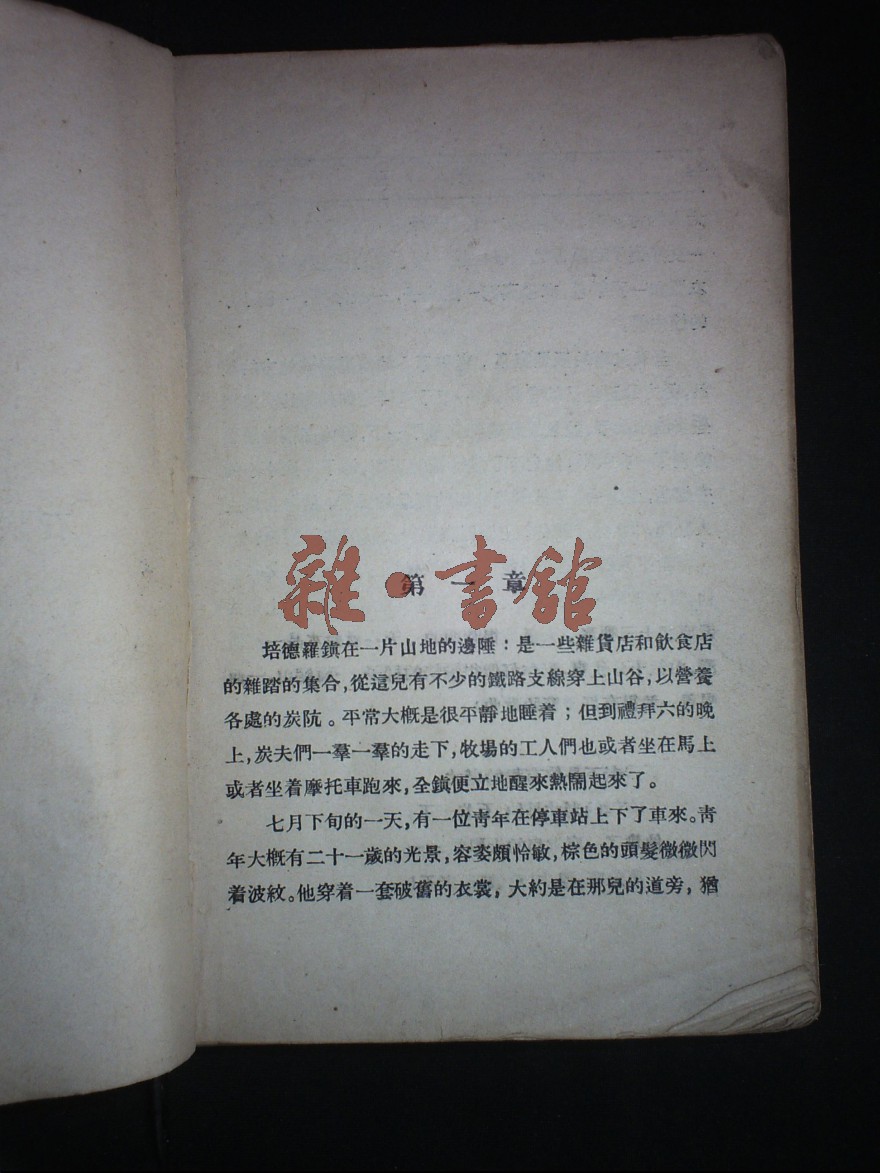 雜·書館
第一章
培德羅鎭在一片山地的邊陲：是一些雜貨店和飲食店
的雜踏的集合，從這兒有不少的鐵路支線穿上山谷，以營養
各處的炭阬。平常大槪是很平靜地睡着；但到禮拜六的晚
上，炭夫們一羣一羣的走下，牧場的工人們也或者坐在馬上
或者坐着摩托車跑來，全鎭便立地醒來熱鬧起來了。
七月下旬的一天，有一位靑年在停車站上下了車來。靑
年大槪有二十一歲的光景，容姿頗怜敏，棕色的頭髮微微閃
着波紋。他穿着一套破舊的衣裳，大約是在那兒的道旁，猶